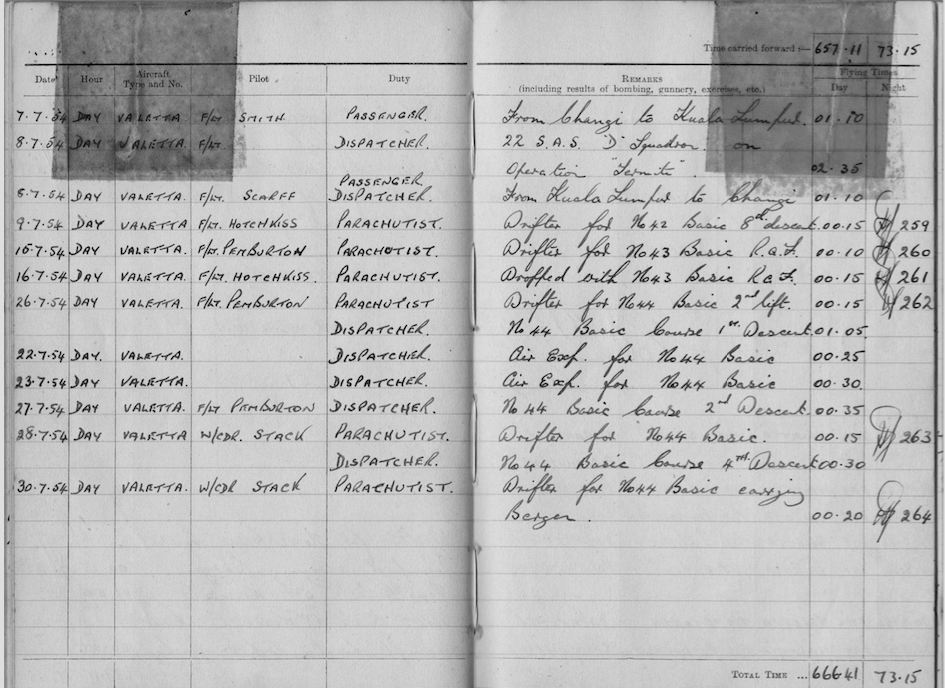 Time carried forward :— 657.11 73.15
Date Hour Aircraft Type and No. Pilot Duty REMARKS (including results of bombing, gunnery, exercises, etc.) Flying Times Day Night
7.7.54 DAY VALETTA F/LT SMITH PASSENGER. From Changi to Kuala Lumpur. 01.10
8.7.54 DAY VALETTA. F/LT. DISPATCHER. 22 S.A.S. "D" Squadron on
Operation "Termite". 02.35
PASSENGER
8.7.54 DAY VALETTA. F/LT. SCARFF DISPATCHER. From Kuala Lumpur to Changi 01.10
9.7.54 DAY VALETTA F/LT. HOTCHKISS PARACHUTIST. Drifter for No 42 Basic 8th descent. 00.15 259
10.7.54 DAY VALETTA. F/LT. PEMBURTON PARACHUTIST. Drifter for No 43 Basic R.G.F. 00.10 260
16.7.54 DAY VALETTA. F/LT. HOTCHKISS. PARACHUTIST. Dropped with No 43 Basic R.G.F. 00.15 261
26.7.54 DAY VALETTA. F/LT. PEMBURTON PARACHUTIST Drifter for No 44 Basic 2nd lift. 00.15 262
DISPATCHER. No 44 Basic Course 1st. Descent. 01.05
22.7.54 DAY. VALETTA. DISPATCHER. Air Exp. for No 44 Basic 00.25
23.7.54 DAY VALETTA. DISPATCHER. Air Exp. for No 44 Basic 00.30
27.7.54 DAY VALETTA. F/LT PEMBURTON DISPATCHER. No 44 Basic Course 2nd Descent. 00.35
28.7.54 DAY VALETTA W/CDR. STACK PARACHUTIST. Drifter for No 44 Basic. 00.15 263
DISPATCHER. No 44 Basic Course 4th. Descent 00.30
30.7.54 DAY VALETTA. W/CDR STACK PARACHUTIST. Drifter for No 44 Basic carrying
Bergen. 00.20 264
TOTAL TIME ... 666.41 73.15